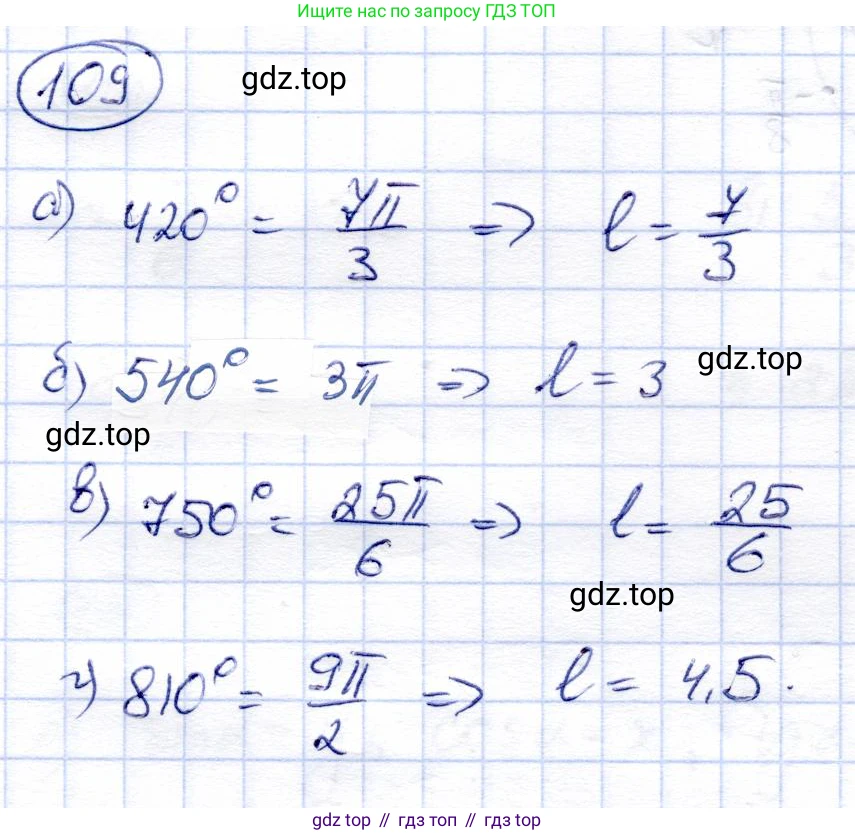 Ищите нас по запросу ГДЗ ТОП
109 gdz.top
а) 420° = 7π/3 => l = 7/3
б) 540° = 3π => l = 3 gdz.top
gdz.top
в) 750° = 25π/6 => l = 25/6
gdz.top
г) 810° = 9π/2 => l = 4,5.
gdz top // гдз топ // gdz top